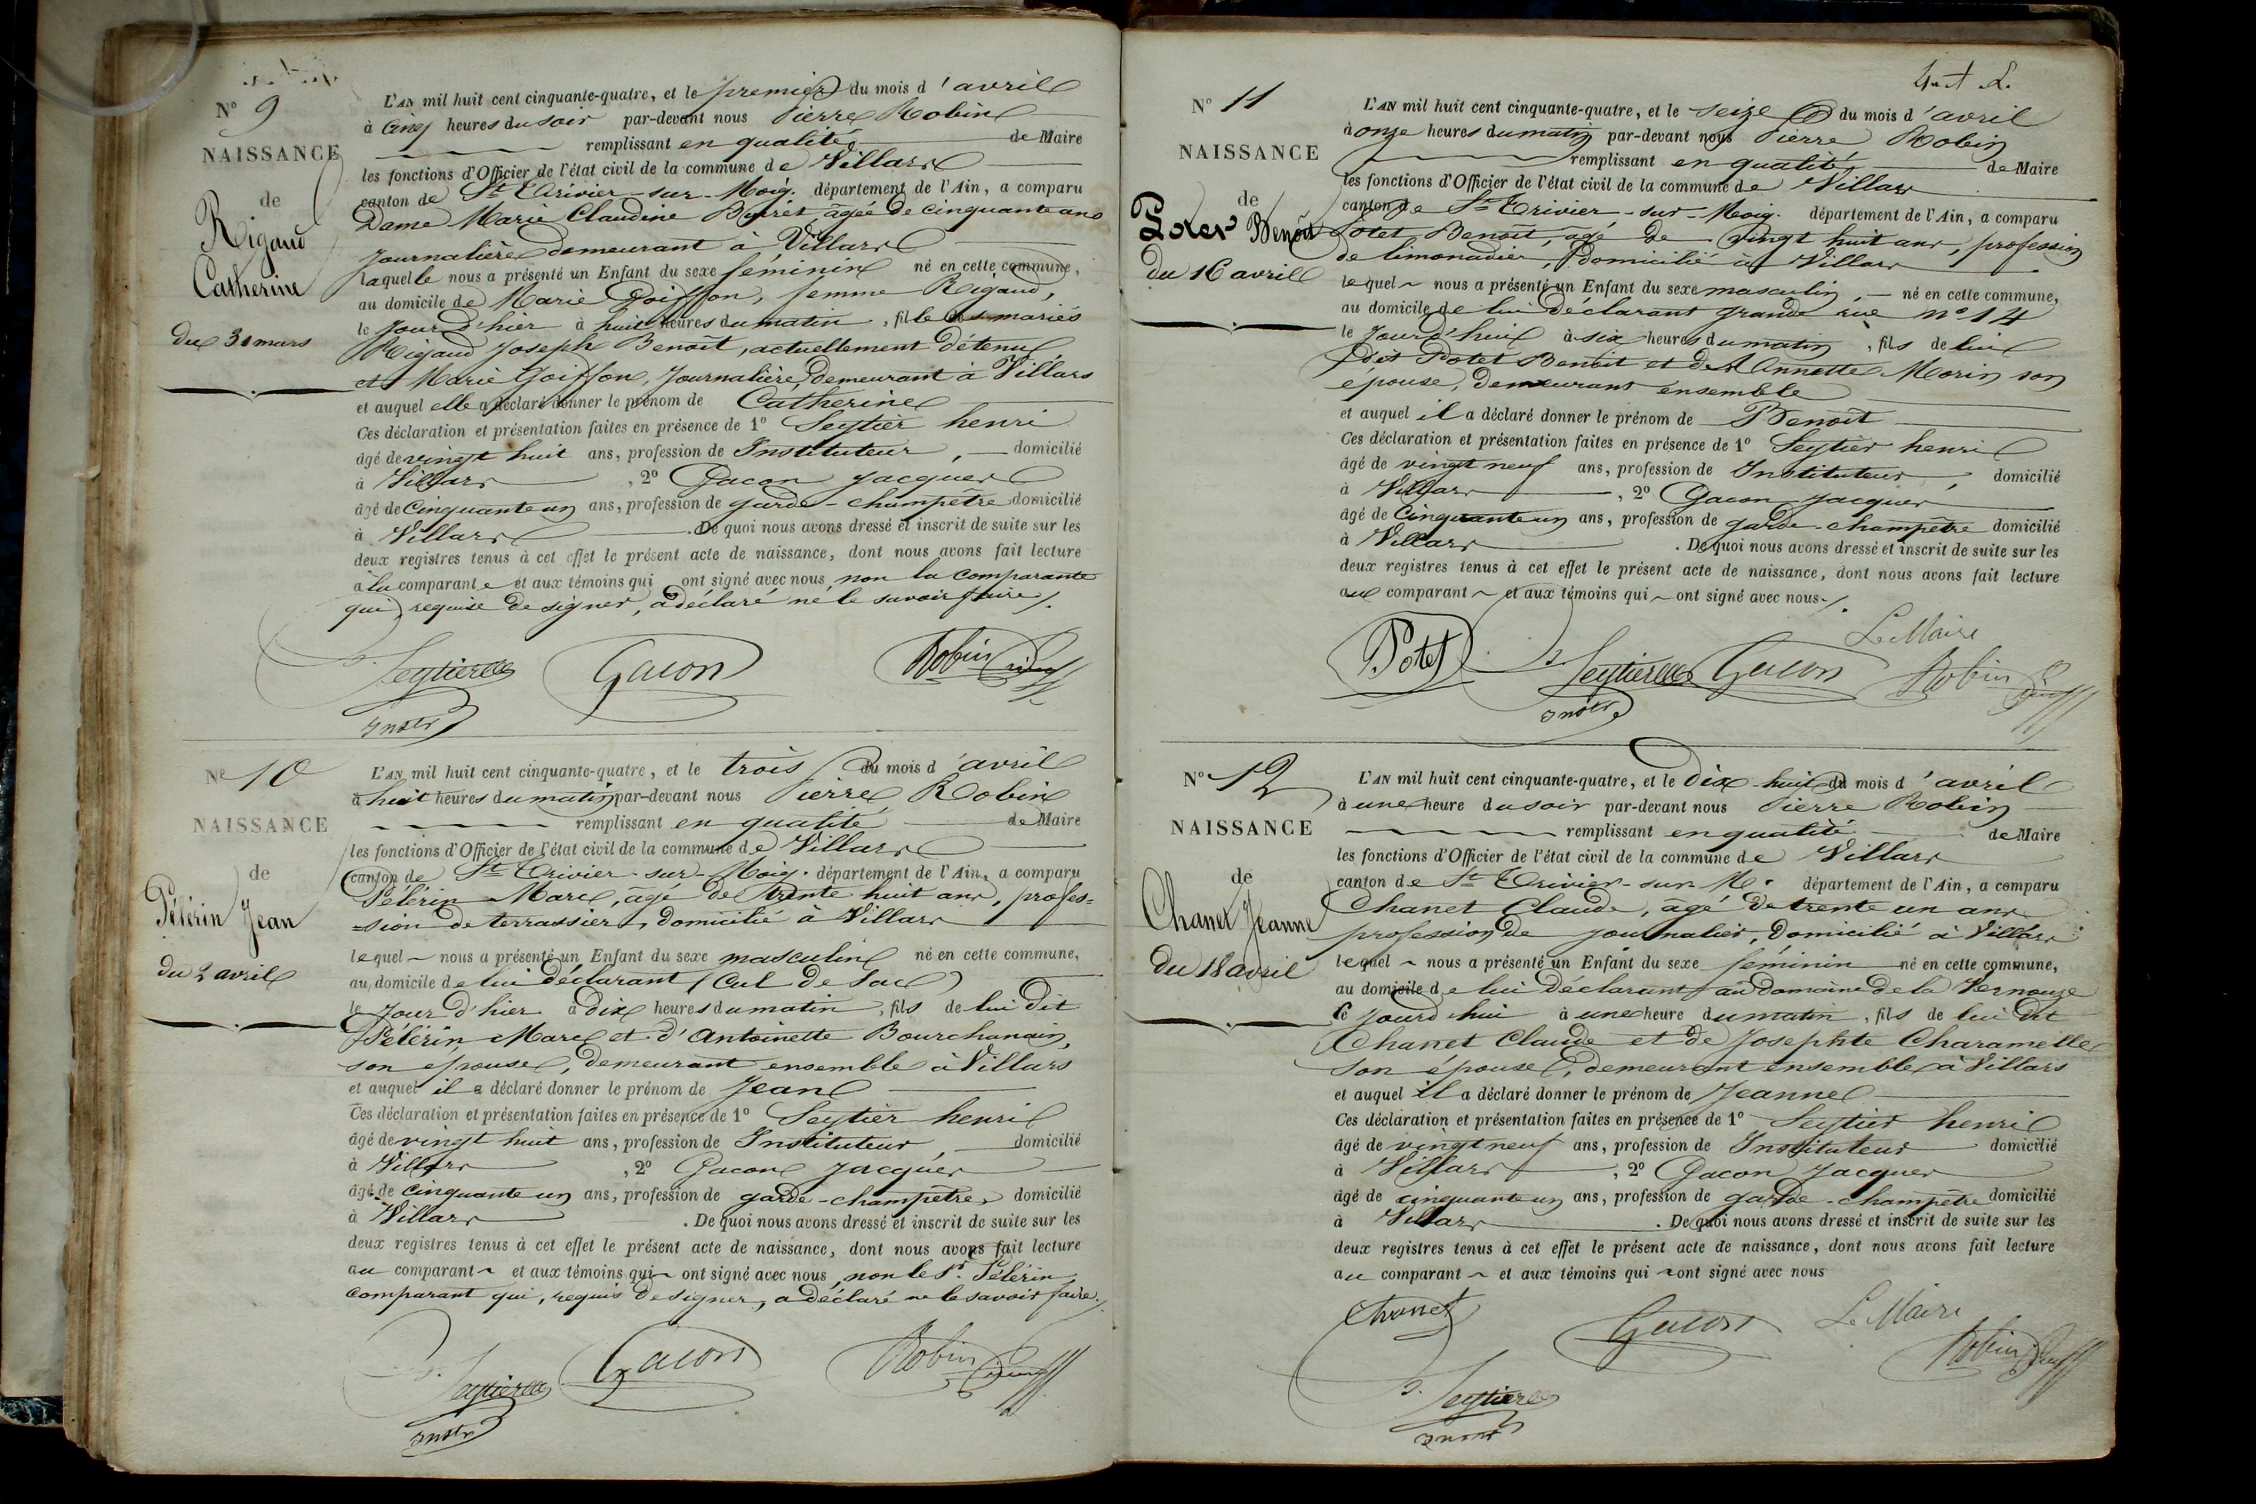 N° 9
NAISSANCE
de
Rigaud
Catherine
du 31 mars
L'AN mil huit cent cinquante-quatre, et le premier du mois d'avril
à cinq heures du soir par-devant nous Pierre Robin
remplissant en qualité de Maire
les fonctions d'Officier de l'état civil de la commune de Villars
canton de St Trivier-sur-Moig. département de l'Ain, a comparu
Dame Marie Claudine âgée de cinquante ans
Journalière demeurant à Villars
laquelle nous a présenté un Enfant du sexe féminin né en cette commune,
au domicile de Marie Goiffon, femme Rigaud,
le jour d'hier à huit heures du matin, fille des mariés
Rigaud Joseph Benoît, actuellement détenu
et Marie Goiffon, Journalière, demeurant à Villars
et auquel elle a déclaré donner le prénom de Catherine
Ces déclaration et présentation faites en présence de 1° Seytier henri
âgé de vingt huit ans, profession de Instituteur, domicilié
à Villars, 2° Gacon Jacques
âgé de Cinquante un ans, profession de garde-champêtre domicilié
à Villars. De quoi nous avons dressé et inscrit de suite sur les
deux registres tenus à cet effet le présent acte de naissance, dont nous avons fait lecture
à la comparante et aux témoins qui ont signé avec nous non la comparante
qui, requise de signer, a déclaré ne le savoir faire/.
Seytier Gacon Robin
Instr
N° 10
NAISSANCE
de
Pélérin Jean
du 2 avril
L'AN mil huit cent cinquante-quatre, et le trois du mois d'avril
à huit heures du matin par-devant nous Pierre Robin
remplissant en qualité de Maire
les fonctions d'Officier de l'état civil de la commune de Villars
canton de St Trivier-sur-Moig. département de l'Ain, a comparu
Pélérin Marc, âgé de trente huit ans, profes=
=sion de terrassier, domicilié à Villars
lequel nous a présenté un Enfant du sexe masculin né en cette commune,
au domicile de lui déclarant (Cul de Sac)
le jour d'hier à dix heures du matin, fils de lui dit
Pélérin Marc et d'Antoinette Bourchanain,
son epouse, demeurant ensemble à Villars
et auquel il a déclaré donner le prénom de Jean
Ces déclaration et présentation faites en présence de 1° Seytier henri
âgé de vingt huit ans, profession de Instituteur, domicilié
à Villars, 2° Gacon Jacques
âgé de cinquante un ans, profession de garde-champêtre domicilié
à Villars. De quoi nous avons dressé et inscrit de suite sur les
deux registres tenus à cet effet le présent acte de naissance, dont nous avons fait lecture
au comparant et aux témoins qui ont signé avec nous, non le Sr. Pélérin,
comparant qui, requis de signer, a déclaré ne le savoir faire./.
Seytier Gacon Robin
Instr
N° 11
NAISSANCE
de
Potet Benoît
du 16 avril
L'AN mil huit cent cinquante-quatre, et le seize du mois d'avril
à onze heures du matin par-devant nous Pierre Robin
remplissant en qualité de Maire
les fonctions d'Officier de l'état civil de la commune de Villars
canton de St Trivier-sur-Moig. département de l'Ain, a comparu
Potet Benoît, âgé de vingt huit ans, profession
de limonadier, domicilié à Villars
lequel nous a présenté un Enfant du sexe masculin, né en cette commune,
au domicile de lui déclarant grande rue n° 14
le Jourd'hui à six heures du matin, fils de lui
dit Potet Benoît et de Annette Morin son
epouse, demeurant ensemble
et auquel il a déclaré donner le prénom de Benoît
Ces déclaration et présentation faites en présence de 1° Seytier henri
âgé de vingt neuf ans, profession de Instituteur, domicilié
à Villars, 2° Gacon Jacques
âgé de Cinquante un ans, profession de garde-champêtre domicilié
à Villars. De quoi nous avons dressé et inscrit de suite sur les
deux registres tenus à cet effet le présent acte de naissance, dont nous avons fait lecture
au comparant et aux témoins qui ont signé avec nous./.
Le Maire
Potet Seytier Gacon Robin
Instr
N° 12
NAISSANCE
de
Chanet Jeanne
du 18 avril
L'AN mil huit cent cinquante-quatre, et le dix huit du mois d'avril
à une heure du soir par-devant nous Pierre Robin
remplissant en qualité de Maire
les fonctions d'Officier de l'état civil de la commune de Villars
canton de St Trivier-sur M. département de l'Ain, a comparu
Chanet Claude, âgé de trente un ans
profession de journalier, domicilié à Villars
lequel nous a présenté un Enfant du sexe féminin né en cette commune,
au domicile de lui déclarant au domaine de la Vernouze
le jourd'hui à une heure du matin, fils de lui dit
Chanet Claude et de Josephte Charamelle
son épouse, demeurant ensemble à Villars
et auquel il a déclaré donner le prénom de Jeanne
Ces déclaration et présentation faites en présence de 1° Seytier henri
âgé de vingt neuf ans, profession de Instituteur domicilié
à Villars, 2° Gacon Jacques
âgé de cinquante un ans, profession de garde-champêtre domicilié
à Villars. De quoi nous avons dressé et inscrit de suite sur les
deux registres tenus à cet effet le présent acte de naissance, dont nous avons fait lecture
au comparant et aux témoins qui ont signé avec nous
Chanet Gacon Le Maire
Robin
Seytier
Instr